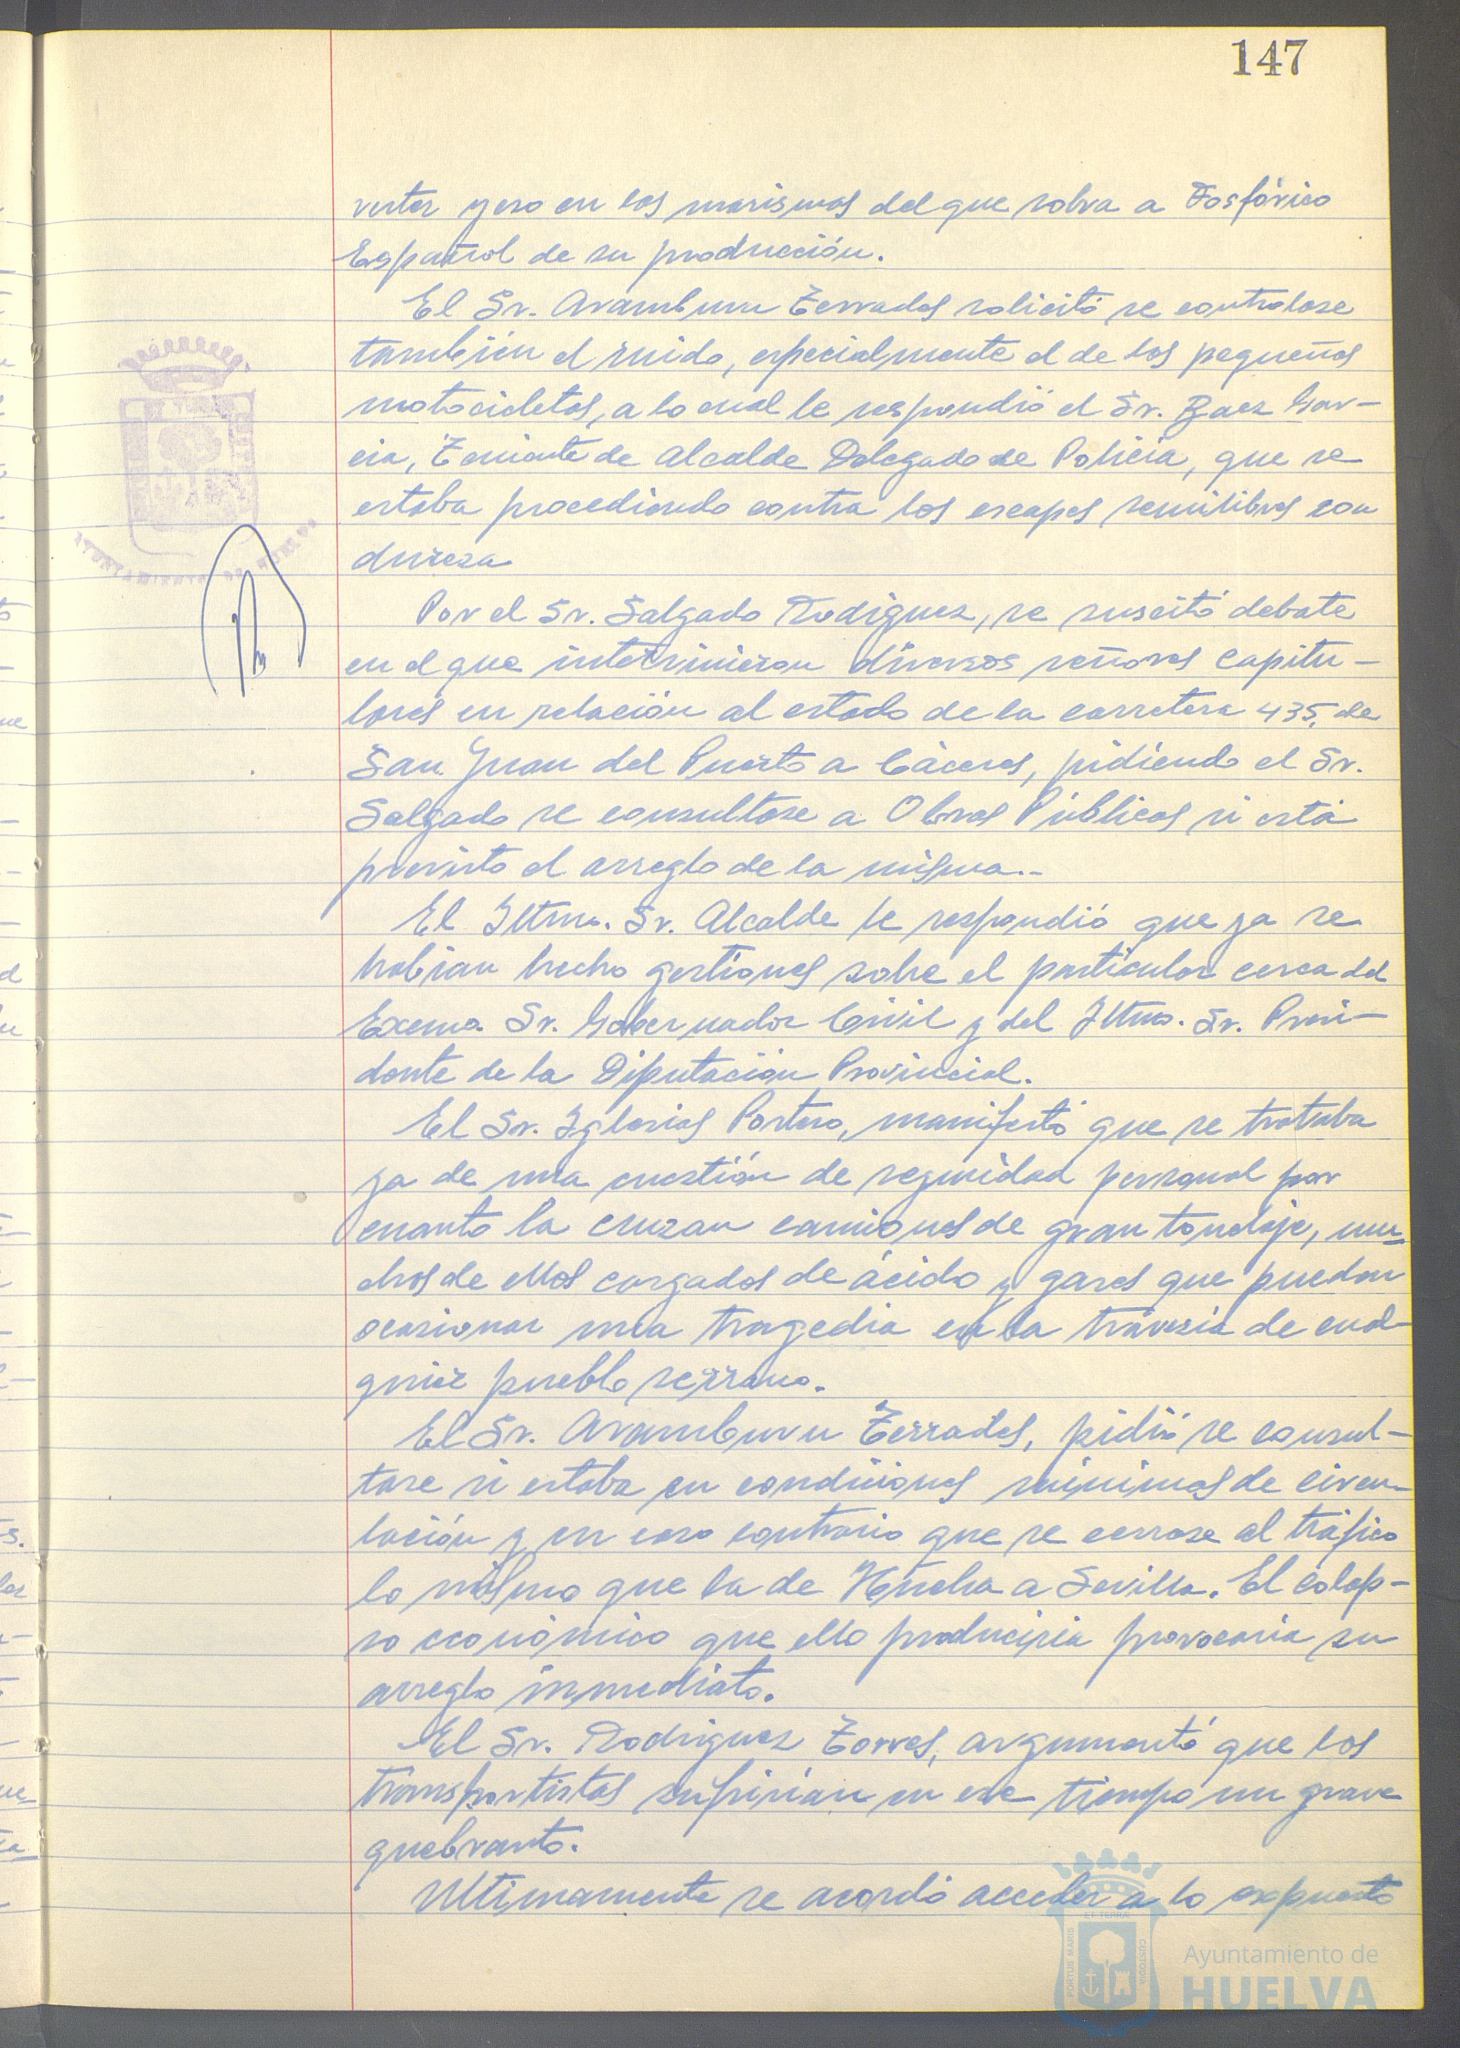 147
verter yeso en las marismas del que sobra a Fosfórico
Español de su producción.
El Sr. Aramburu Terrades solicitó se controlase
también el ruido, especialmente el de las pequeñas
motocicletas, a lo cual le respondió el Sr. Baez Gar-
cia, Teniente de Alcalde Delegado de Policia, que se
estaba procediendo contra los escapes semilibres con
dureza
Por el Sr. Salgado Rodriguez, se suscitó debate
en el que intervinieron diversos señores Capitu-
lares en relación al estado de la carretera 435, de
San Juan del Puerto a Cáceres, pidiendo el Sr.
Salgado se consultase a Obras Públicas si está
previsto el arreglo de la misma..-
El Iltmo. Sr. Alcalde le respondió que ya se
habian hecho gestiones sobre el particular cerca del
Excmo. Sr. Gobernador Civil y del Iltmo. Sr. Presi-
dente de la Diputación Provincial.
El Sr. Iglesias Portero, manifestó que se trataba
ya de una cuestión de seguridad personal por
cuanto la cruzan camiones de gran tonelaje, mu-
chos de ellos cargados de ácido y gases que pueden
ocasionar una tragedia en la travesía de cual-
quier pueblo serrano.
El Sr. Aramburu Terrades, pidió se consul-
tase si estaba en condiciones minimas de circu-
lación y en caso contrario que se cerrase al tráfico
lo mismo que la de Huelva a Sevilla. El colap-
so económico que ello produciria provocaria su
arreglo inmediato.
El Sr. Rodriguez Torres, argumentó que los
transportistas sufririan en ese tiempo un grave
quebranto.
Ultimamente se acordó acceder a lo expuesto
AYUNTAMIENTO DE HUELVA
PORTUS MARIS
ET TERRA
CUSTODIA
Ayuntamiento de
HUELVA